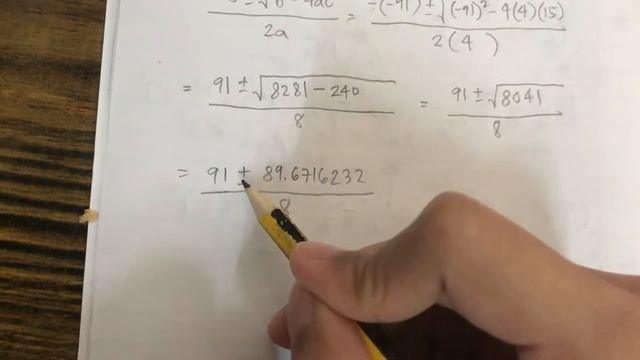 √b² - 4ac = -(-91) ± √(-91)² - 4(4)(15)
2a 2(4)
= 91 ± √8281 - 240 = 91 ± √8041
8 8
= 91 ± 89.6716232
8